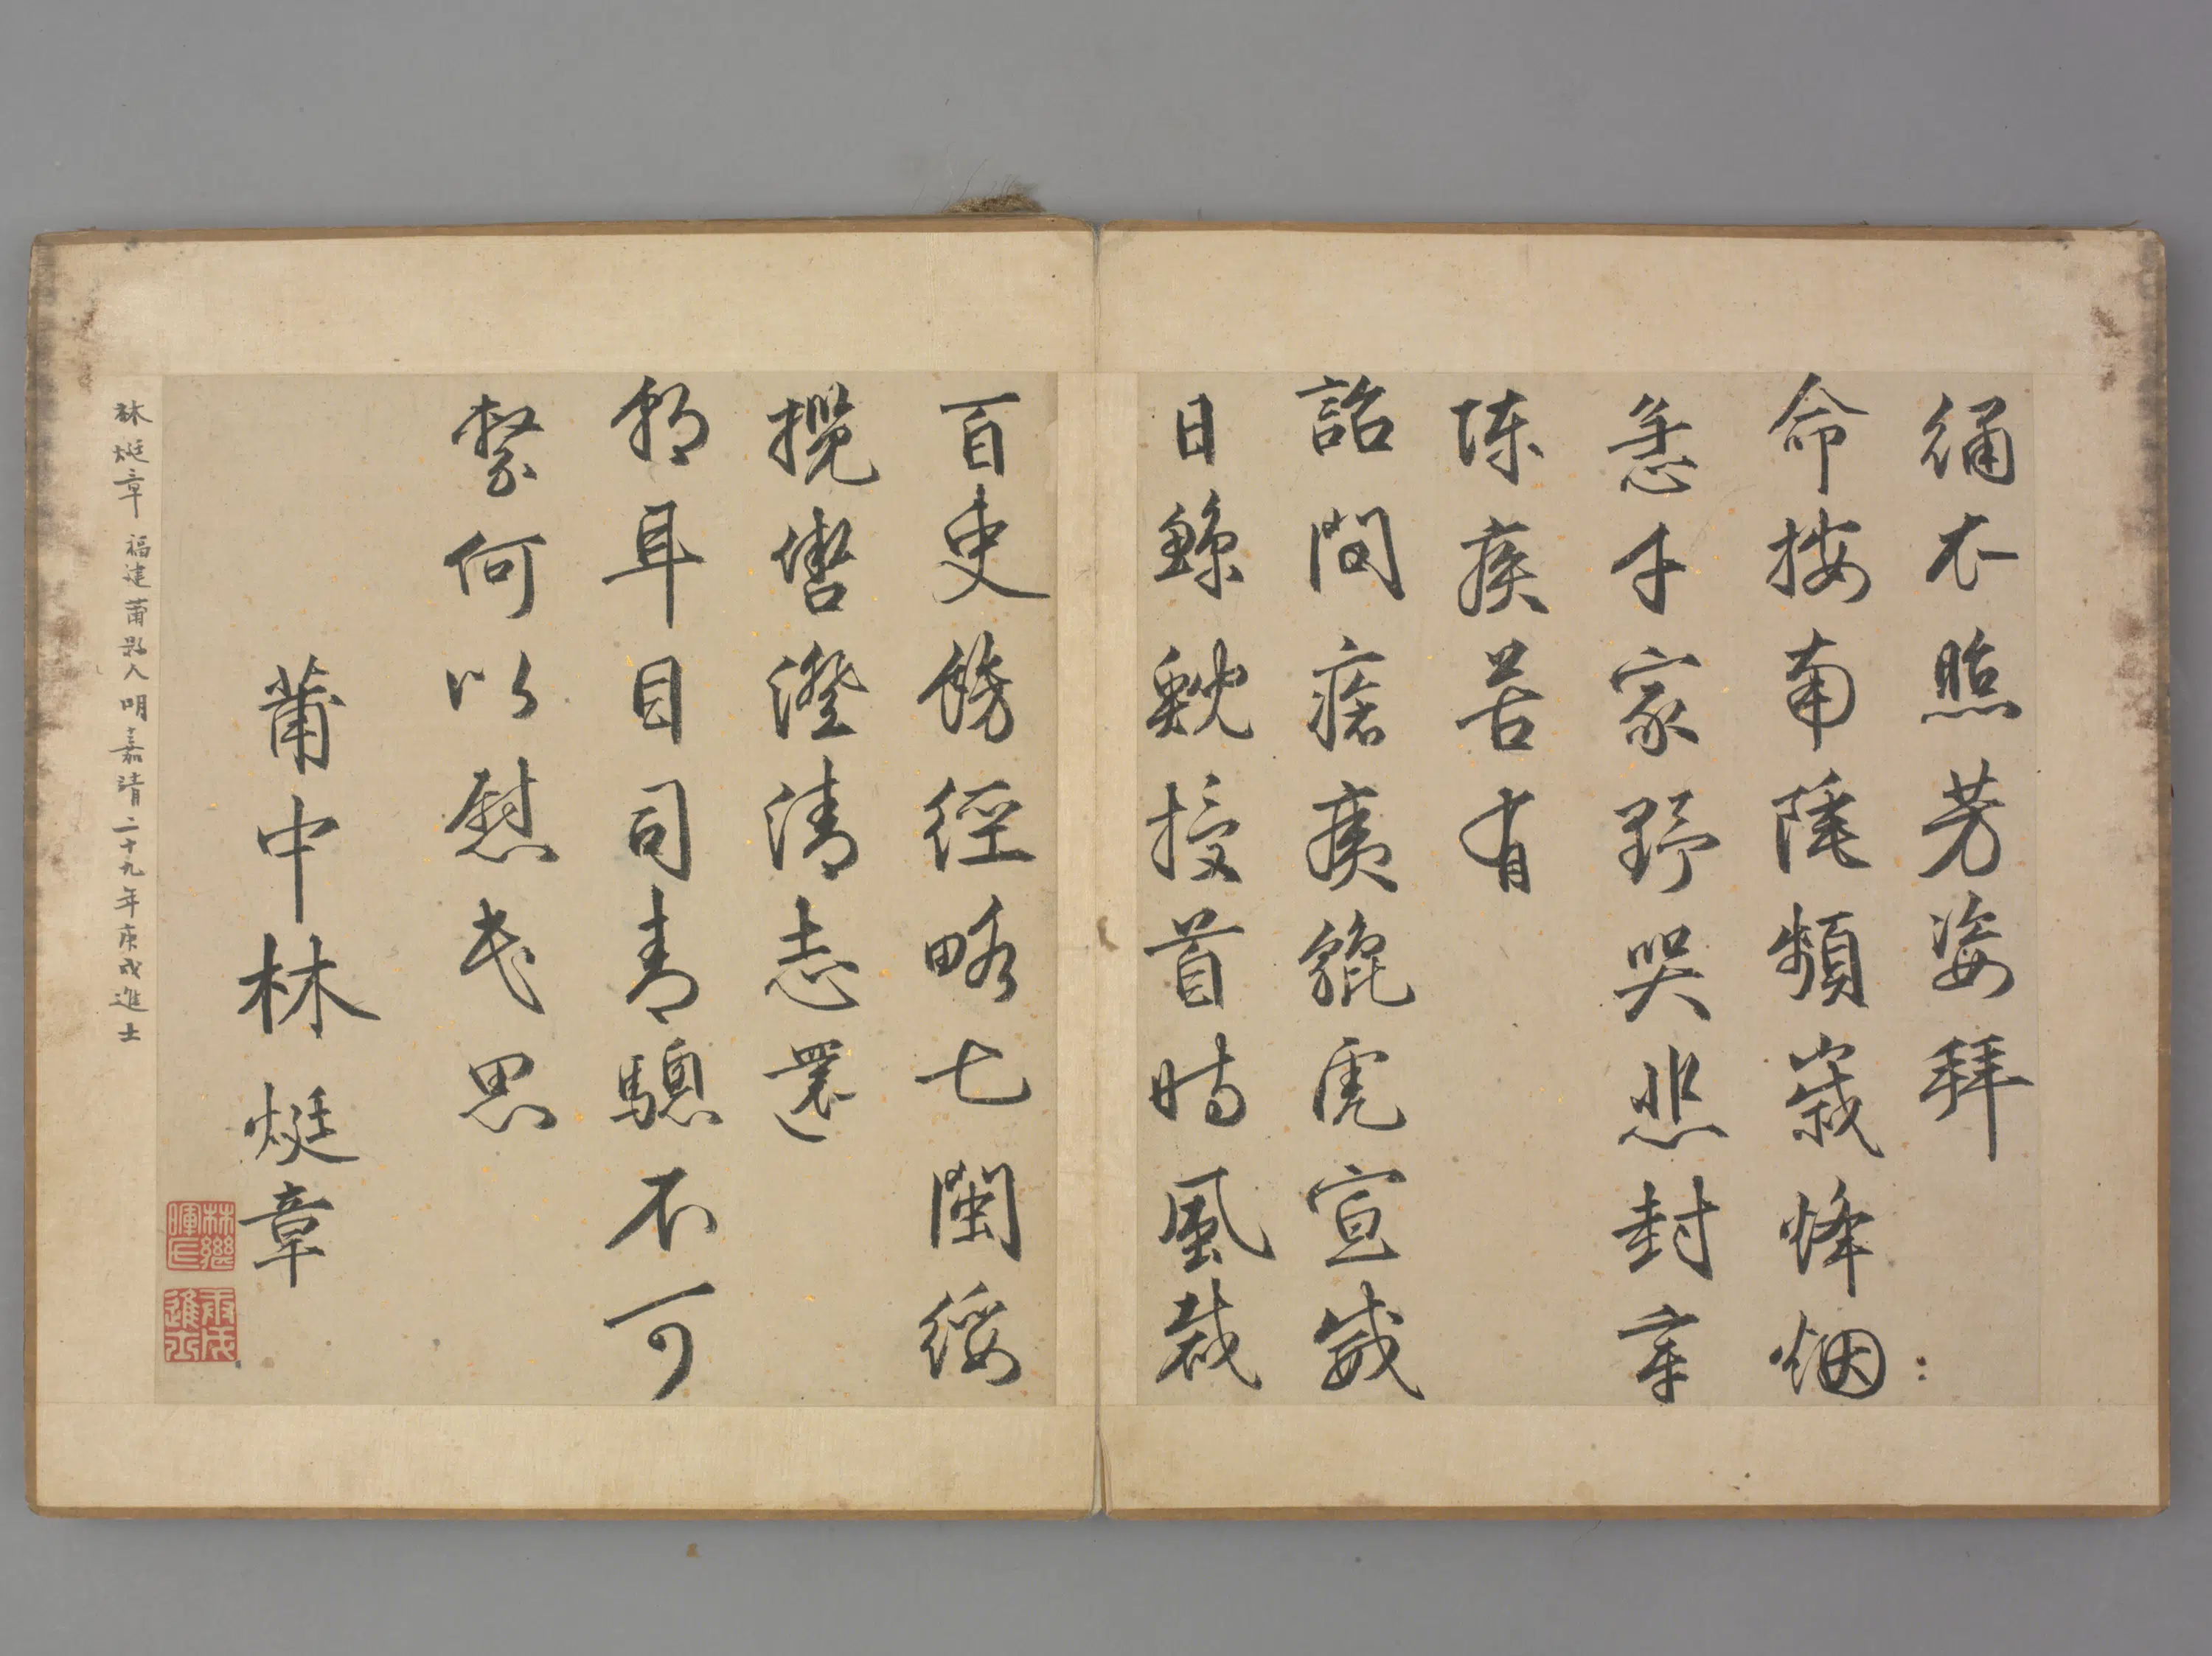 繡衣照芳姿拜
命按南陲頻歲烽烟
急千家野哭悲封章
陳疾苦有
詔問瘡痍貔虎宣威
日鯨鯢授首時風裁
百吏飭經略七閩綏
攬轡澄清志還
朝耳目司青驄不可
縶何以慰民思
莆中林烶章
林繼暉氏
進士
林烶章 福建莆縣人明嘉靖二十九年庚戌進士